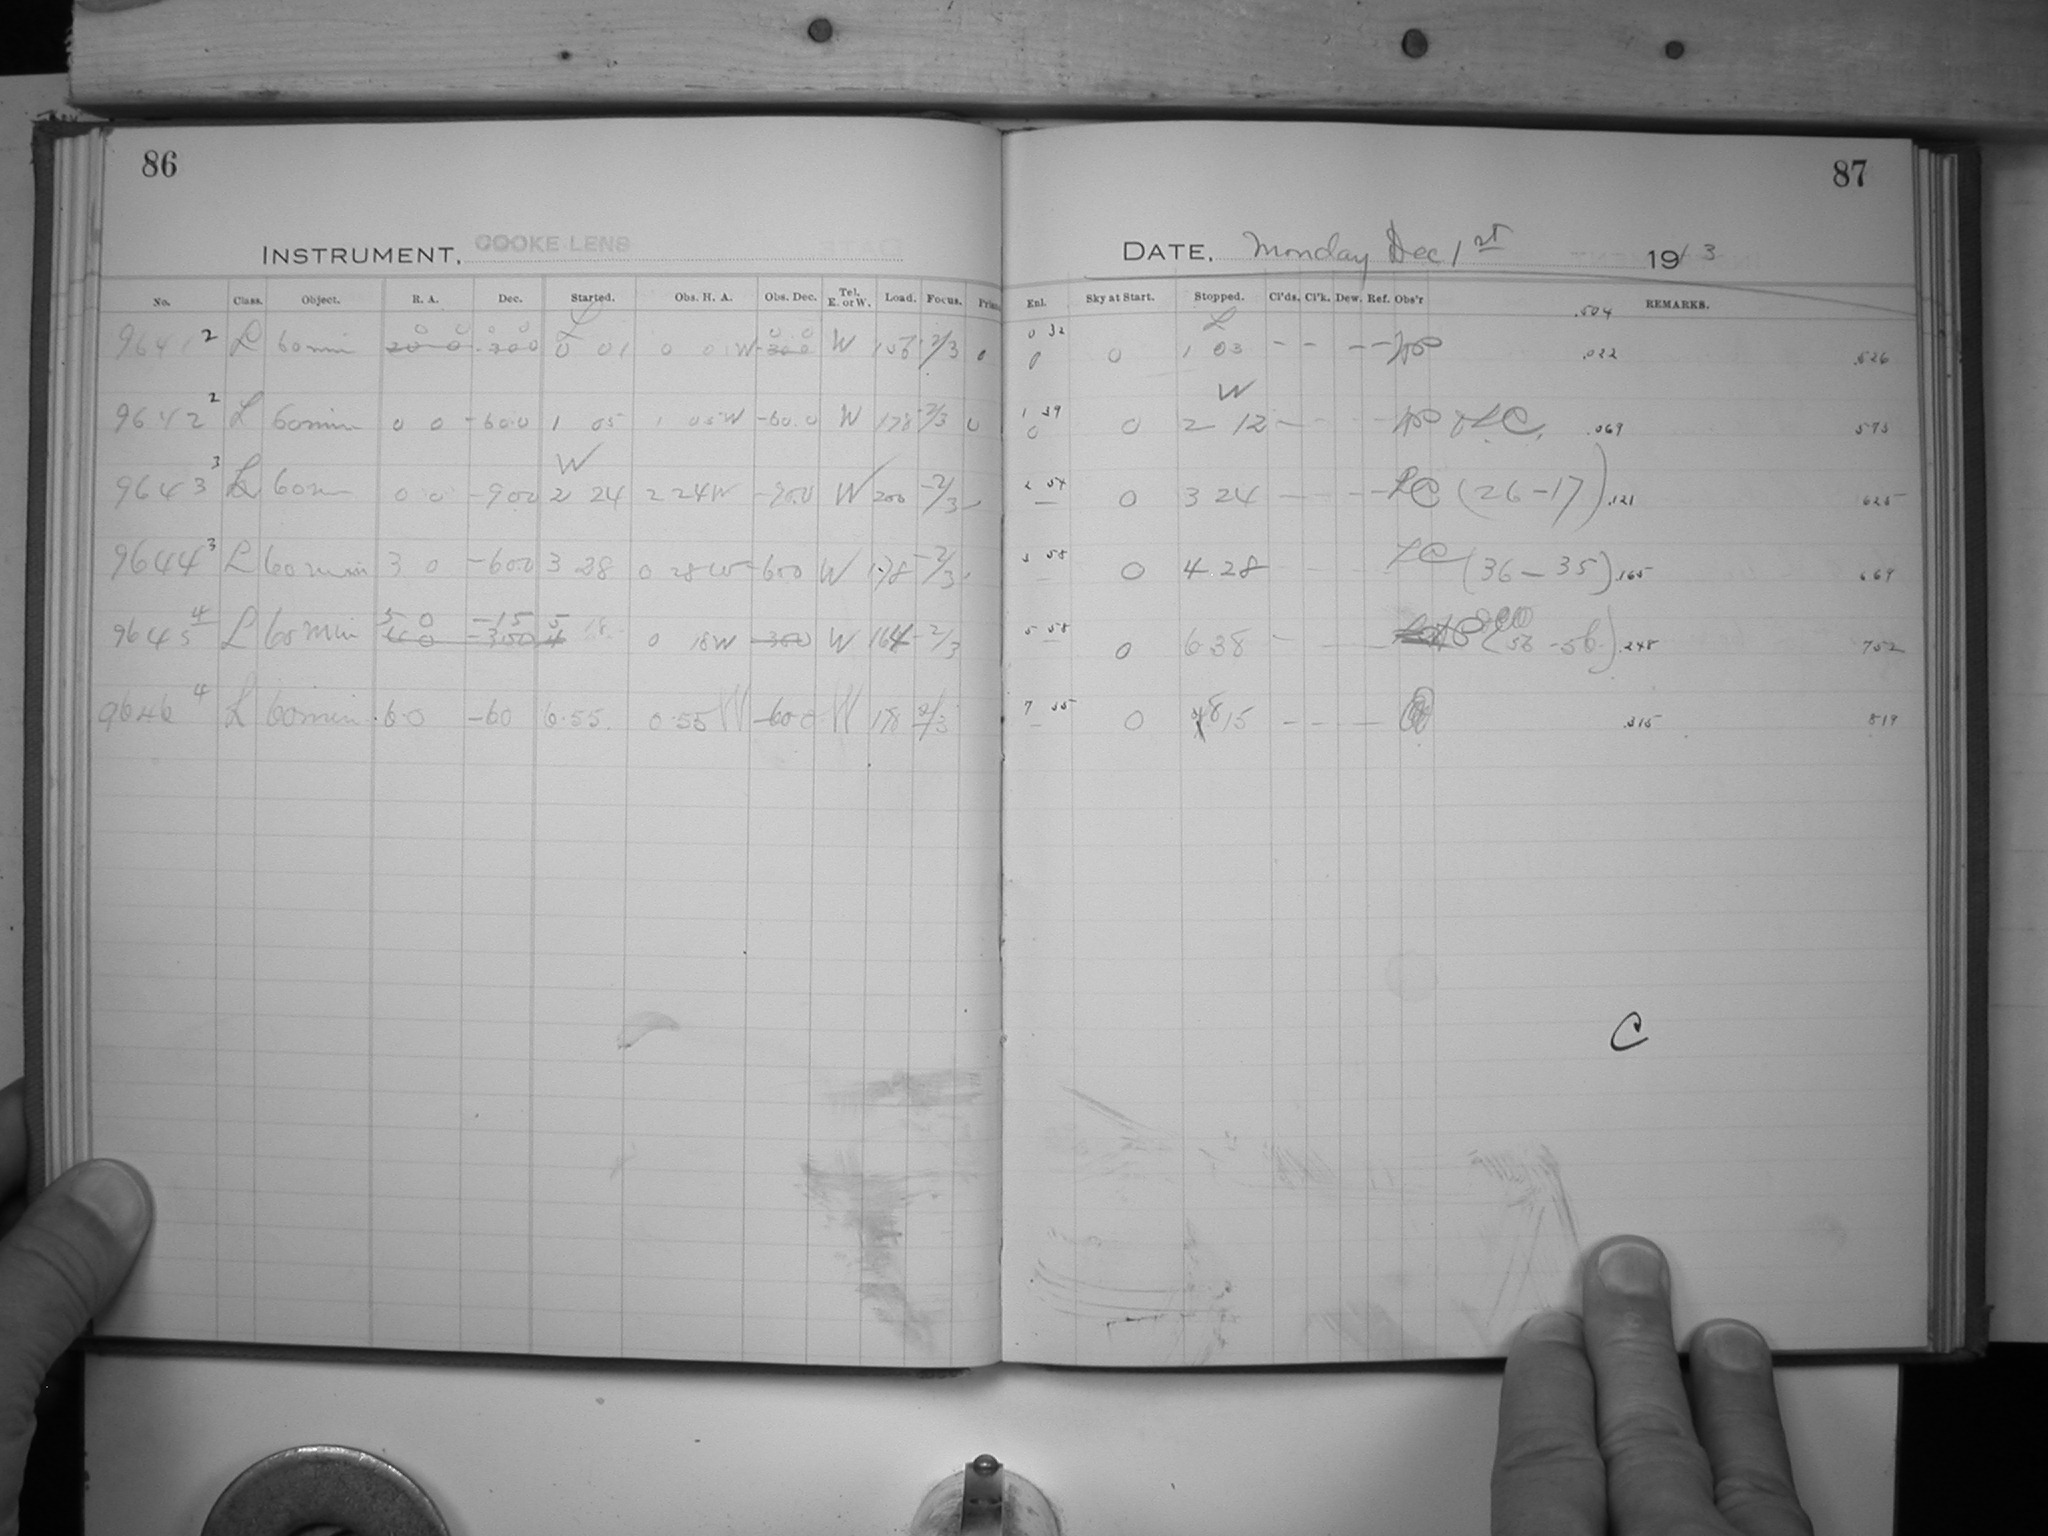 86
INSTRUMENT. COOKE LENS
No. Class. Object. R. A. Dec. Started. Obs. H. A. Obs. Dec. Tel. E. or W. Load. Focus. Prism
0 0 0 0 L 0 0
9641 2 L 60 min 20 0 -300 0 01 0 01 W -300 W 156 -2/3 0
9642 2 L 60 min 0 0 -600 1 05 1 05 W -60.0 W 178 -2/3 0
W
9643 3 L 60 m 0 0 -900 2 24 2 24 W -900 W 200 -2/3 -
9644 3 L 60 min 3 0 -600 3 28 0 28 W -600 W 178 -2/3
5 0 -15 5
9645 4 L 60 min 4 0 -300 4 18 0 18 W -300 W 164 -2/3
9646 4 L 60 min 6 0 -60 6.55 0 55 W -600 W 178 2/3
87
DATE. Monday Dec 1st 1913
Enl. Sky at Start. Stopped. Cl'ds. Cl'k. Dew. Ref. Obs'r REMARKS.
.504
0 32 L
0 0 1 03 - - - - .022 .526
W
1 39
0 0 2 12 - - - - .069 573
2 54
- 0 3 24 - - - - LC (26-17) .121 625
3 58
- 0 4 28 - - - - LC (36-35) .165 669
5 58
- 0 6 38 - - - - (56-56) .248 752
7 35
- 0 8 15 - - - - .315 819
C